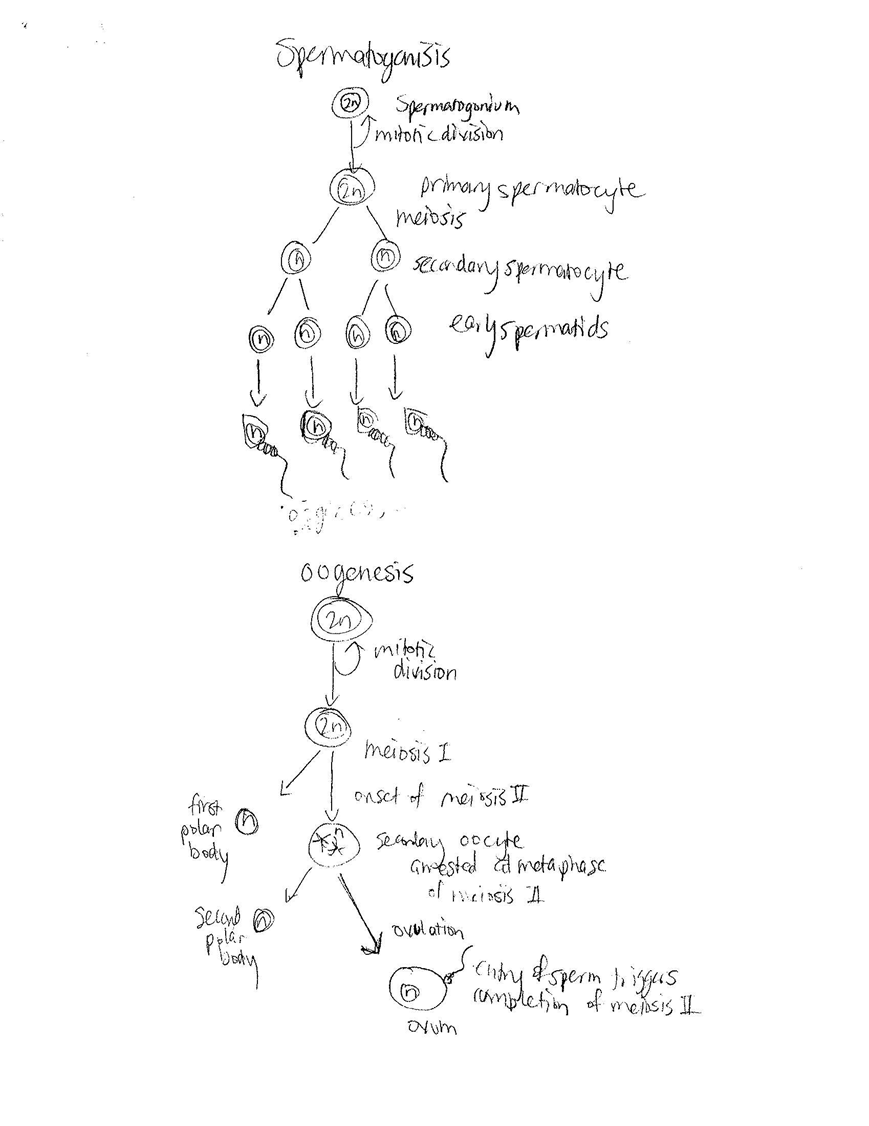 Spermatogenisis
2n
Spermatogonium
mitotic division
2n
primary spermatocyte
meiosis
n
n
secondary spermatocyte
n
n
n
n
early spermatids
n
n
n
n
oogenesis
2n
mitotic
division
2n
meiosis I
onset of meiosis II
first
polar
body
n
n
secondary oocyte
arrested at metaphase
of meiosis II
second
polar
body
n
ovulation
entry of sperm triggers
completion of meiosis II
n
ovum